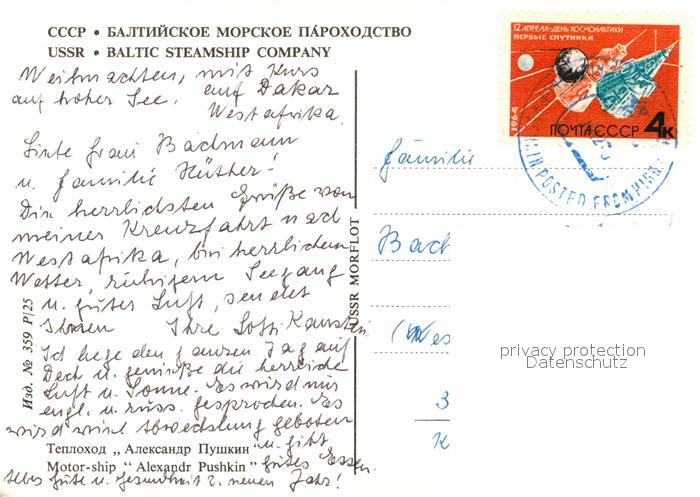 СССР • БАЛТИЙСКОЕ МОРСКОЕ ПАРОХОДСТВО
USSR • BALTIC STEAMSHIP COMPANY
Weihnachten, mit Kurs
auf hoher See. auf Dakar
Westafrika.
Liebe Frau Bachmann
u. Familie Hüther!
Die herrlichsten Grüße von
meiner Kreuzfahrt nach
Westafrika, bei herrlichem
Wetter, ruhigem Seegang
u. guter Luft, sendet
Ihnen Ihre
Ich liege den ganzen Tag auf
Deck u. genieße die herrliche
Luft u. Sonne. Es wird nur
engl. u. russ. gesprochen. Es
wird viel Abwechslung geboten
u. gibt
gutes Essen.
Alles Gute u. Gesundheit z. neuen Jahr!
Теплоход „Александр Пушкин“
Motor-ship “Alexandr Pushkin”
Изд. № 359 P/25
USSR MORFLOT
12 АПРЕЛЯ-ДЕНЬ КОСМОНАВТИКИ
ПЕРВЫЕ СПУТНИКИ
1964
ПОЧТА СССР 4к
POSTED FROM HIGH
Familie
Bach
(Wes
3
K
privacy protection
Datenschutz